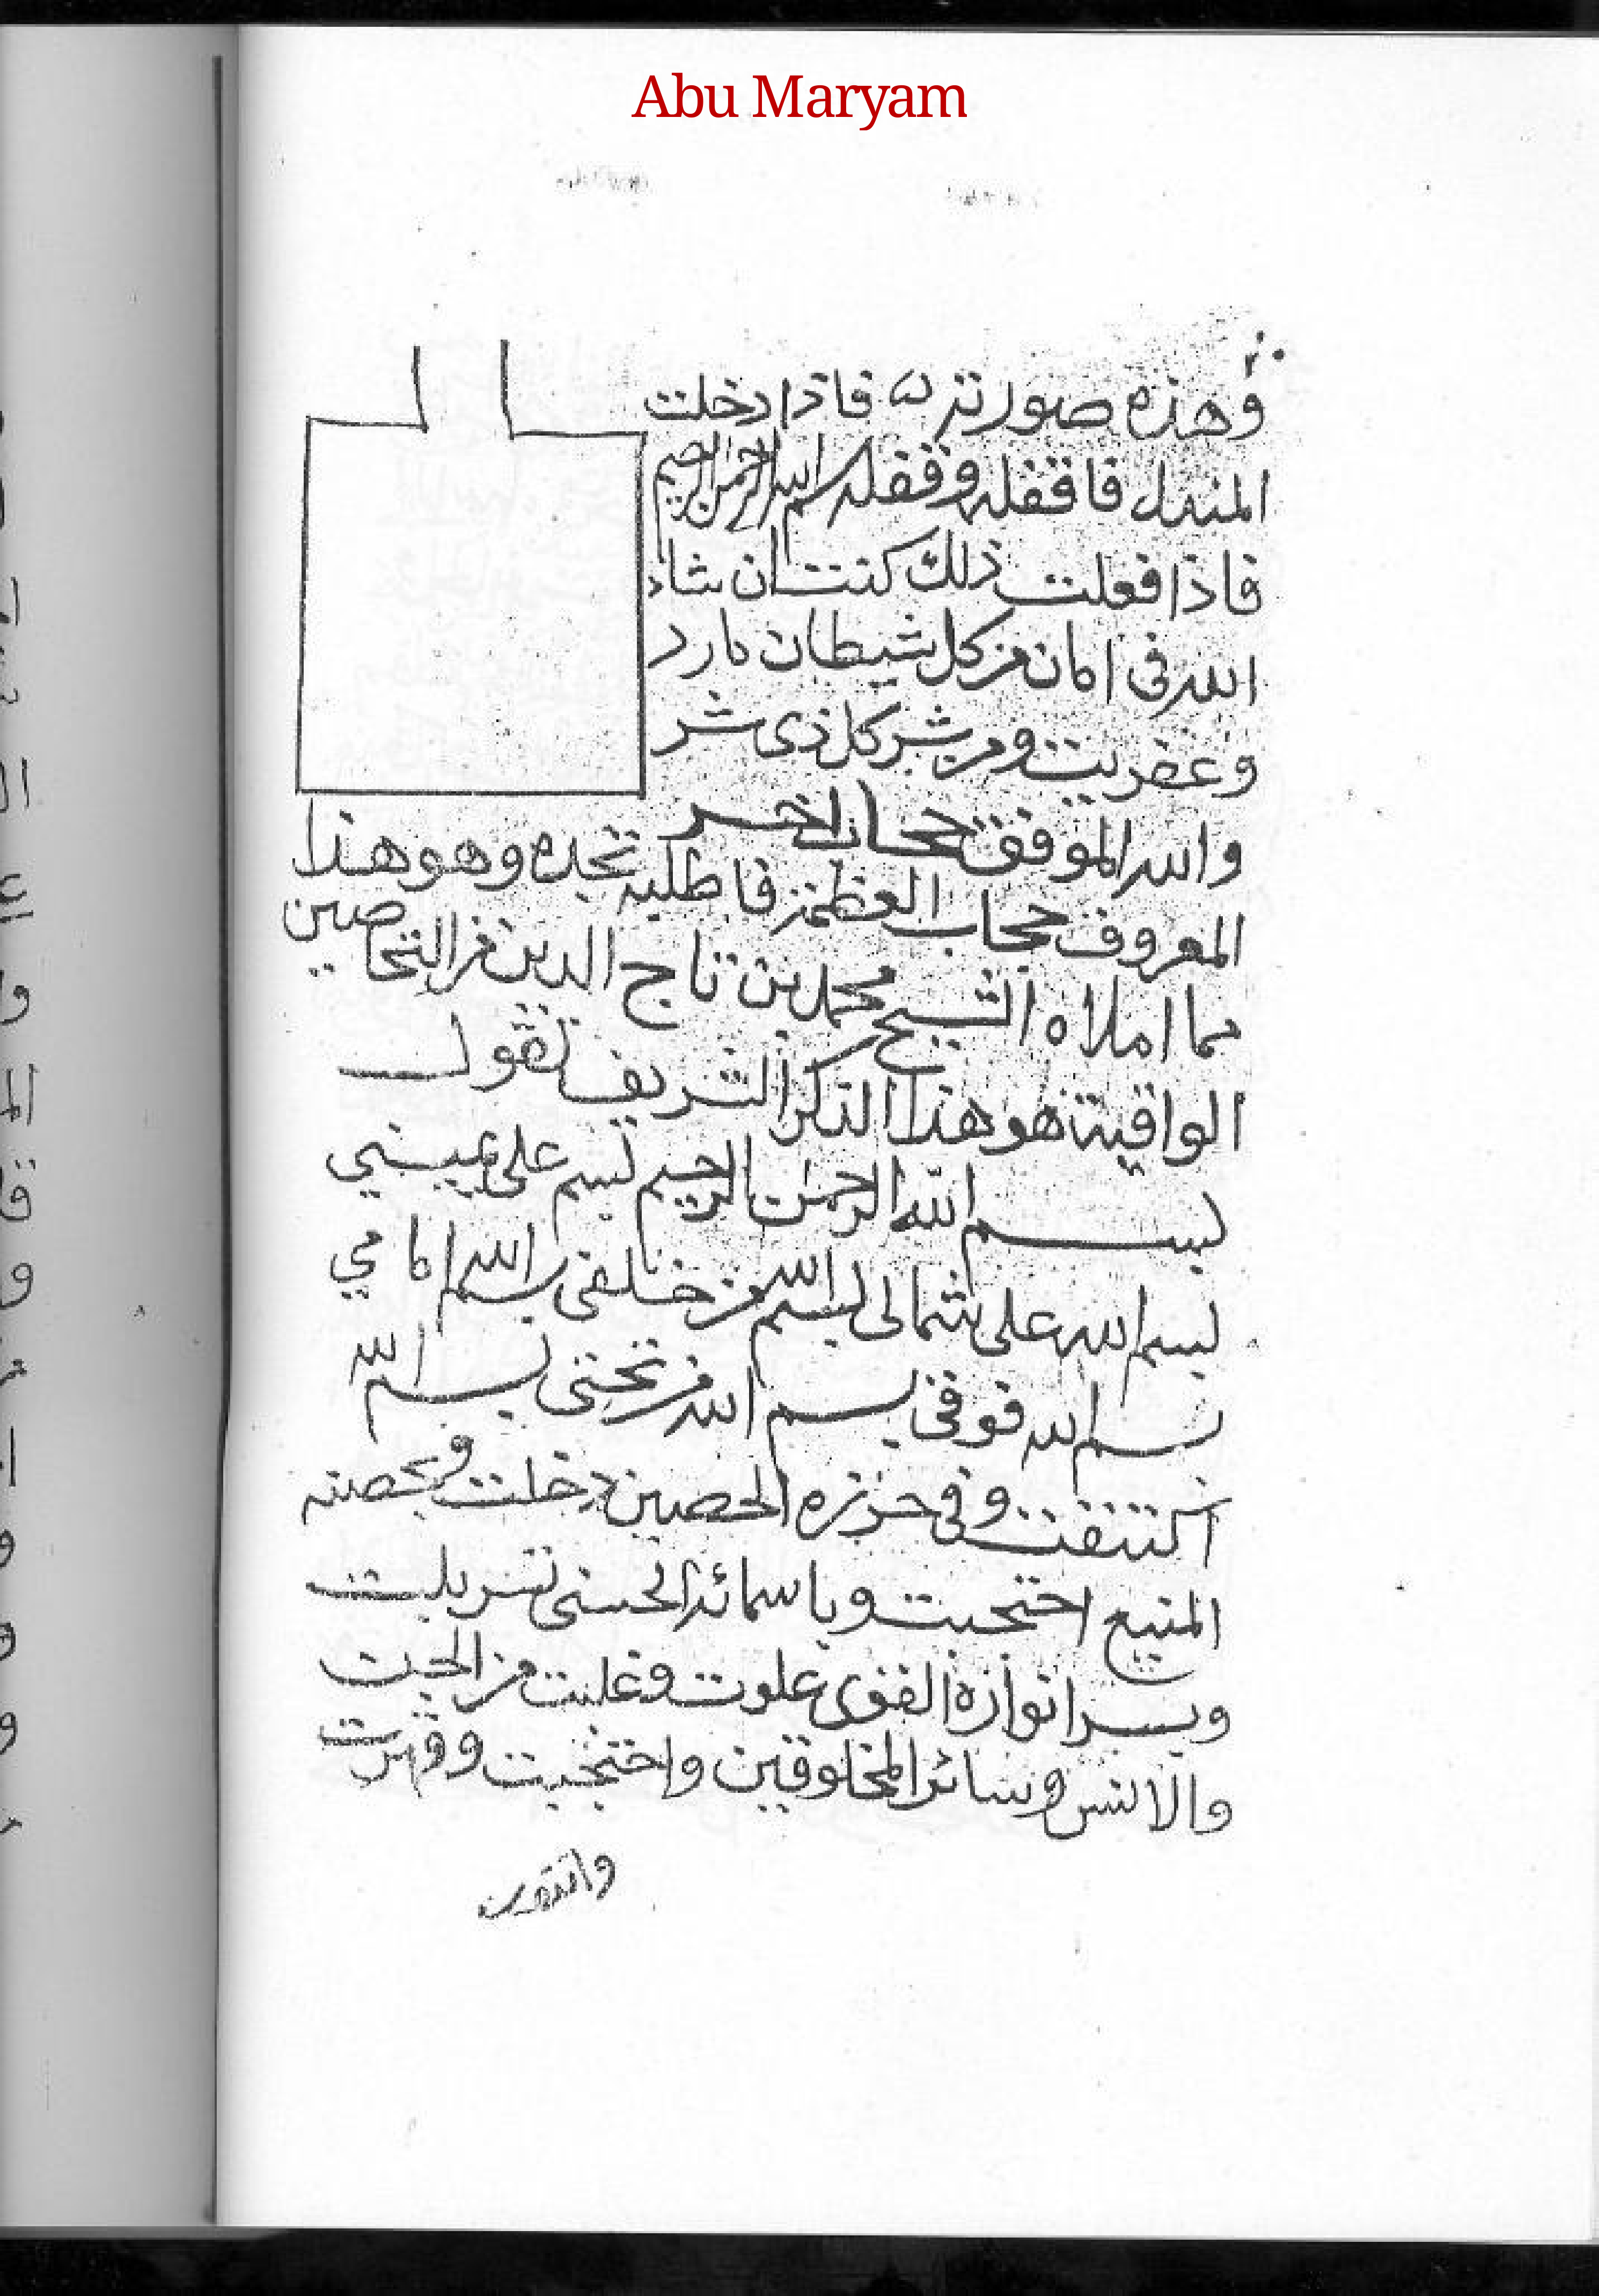 Abu Maryam
وهذه صورته فاذا دخلت
المندل فاقفله وقفله بسم الله الرحمن الرحيم
فاذا فعلت ذلك كنت ان شاء
الله فى امان من كل شيطان مارد
وعفريت ومن شر كل ذى شر
والله الموفق حجاب اخر
المعروف حجاب العظمة فاطلبه تجده وهو هذا
مما املاه الشيخ محمد بن تاج الدين من التحاصين
الواقية هو هذا الذكر الشريف تقول
بسم الله الرحمن الرحيم بسم على يميني
بسم الله على شمالى بسم الله من خلفى بسم الله امامي
بسم الله فوقى بسم الله من تحتى بسم الله
اكتنفت وفى حرزه الحصين دخلت وبحصنه
المنيع احتجبت وباسمائه الحسنى تسربلت
وبسر انواره القوى علوت وغلبت من الجن
والانس وسائر المخلوقين واحتجبت وقهرت